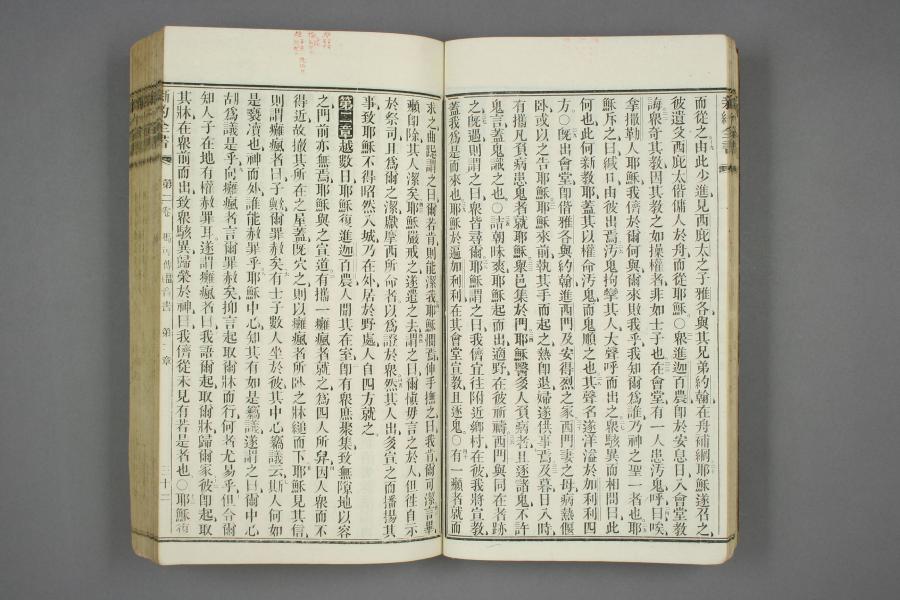 而從之由此少進見西庇太之子雅各與其兄弟約翰在舟補網耶穌遂召之
彼遺父西庇太偕傭人於舟而從耶穌○衆進迦百農卽於安息日入會堂教
誨衆奇其教因其教之如操權者非如士子也在會堂有一人患汚鬼呼曰唉
拿撒勒人耶穌我儕於爾何與爾來敗我乎我知爾爲誰乃神之聖一者也耶
穌斥之曰緘口由彼出焉汚鬼拘攣其人大聲呼而出之衆駭異而相問曰此
何也此何新教耶蓋其以權命汚鬼而鬼順之也其聲名遂洋溢於加利利四
方○旣出會堂卽偕雅各與約翰進西門及安得烈之家西門妻之母病熱偃
臥或以之告耶穌耶穌來前執其手而起之熱卽退婦遂供事焉及暮日入時
有攜凡負病患鬼者就耶穌舉邑集於門耶穌醫多人負病者且逐諸鬼不許
鬼言蓋鬼識之也○詰朝昧爽耶穌起而出適野在彼祈禱西門與同在者跡
之旣遇則謂之曰衆皆尋爾耶穌謂之曰我儕宜往附近鄉村在彼我將宣教
蓋我爲是而來也耶穌於遍加利利在其會堂宣教且逐鬼○有一癩者就而
求之曲跽謂之曰爾若肯則能潔我耶穌憫焉伸手撫之曰我肯爾可潔言畢
癩卽除其人潔矣耶穌嚴戒之遂遣之去謂之曰爾愼毋言之於人但徃自示
於祭司且爲爾之潔獻摩西所命者以爲證於衆然其人出多宣之而播揚其
事致耶穌不得昭然入城乃在外居於野處人自四方就之
第二章越數日耶穌復進迦百農人聞其在室卽有衆庶聚集致無隙地以容
之門前亦無焉耶穌與之宣道有攜一癱瘋者就之爲四人所舁因人衆而不
得近故撤其所在之屋蓋旣穴之則以癱瘋者所臥之牀縋而下耶穌見其信
則謂癱瘋者曰子與爾罪赦矣有士子數人坐於彼其中心竊議云斯人何如
是褻瀆也神而外誰能赦罪乎耶穌中心知其有如是竊議遂謂之曰爾中心
胡爲議是乎向癱瘋者言爾罪赦矣抑言起取爾牀而行何者尤易乎但令爾
知人子在地有權赦罪耳遂謂癱瘋者曰我語爾起取爾牀歸爾家彼卽起取
其牀在衆前而出致衆駭異歸榮於神曰我儕從未見有若是者也○耶穌復
新約全書 第二卷 馬可傳福音書 第二章 三十二